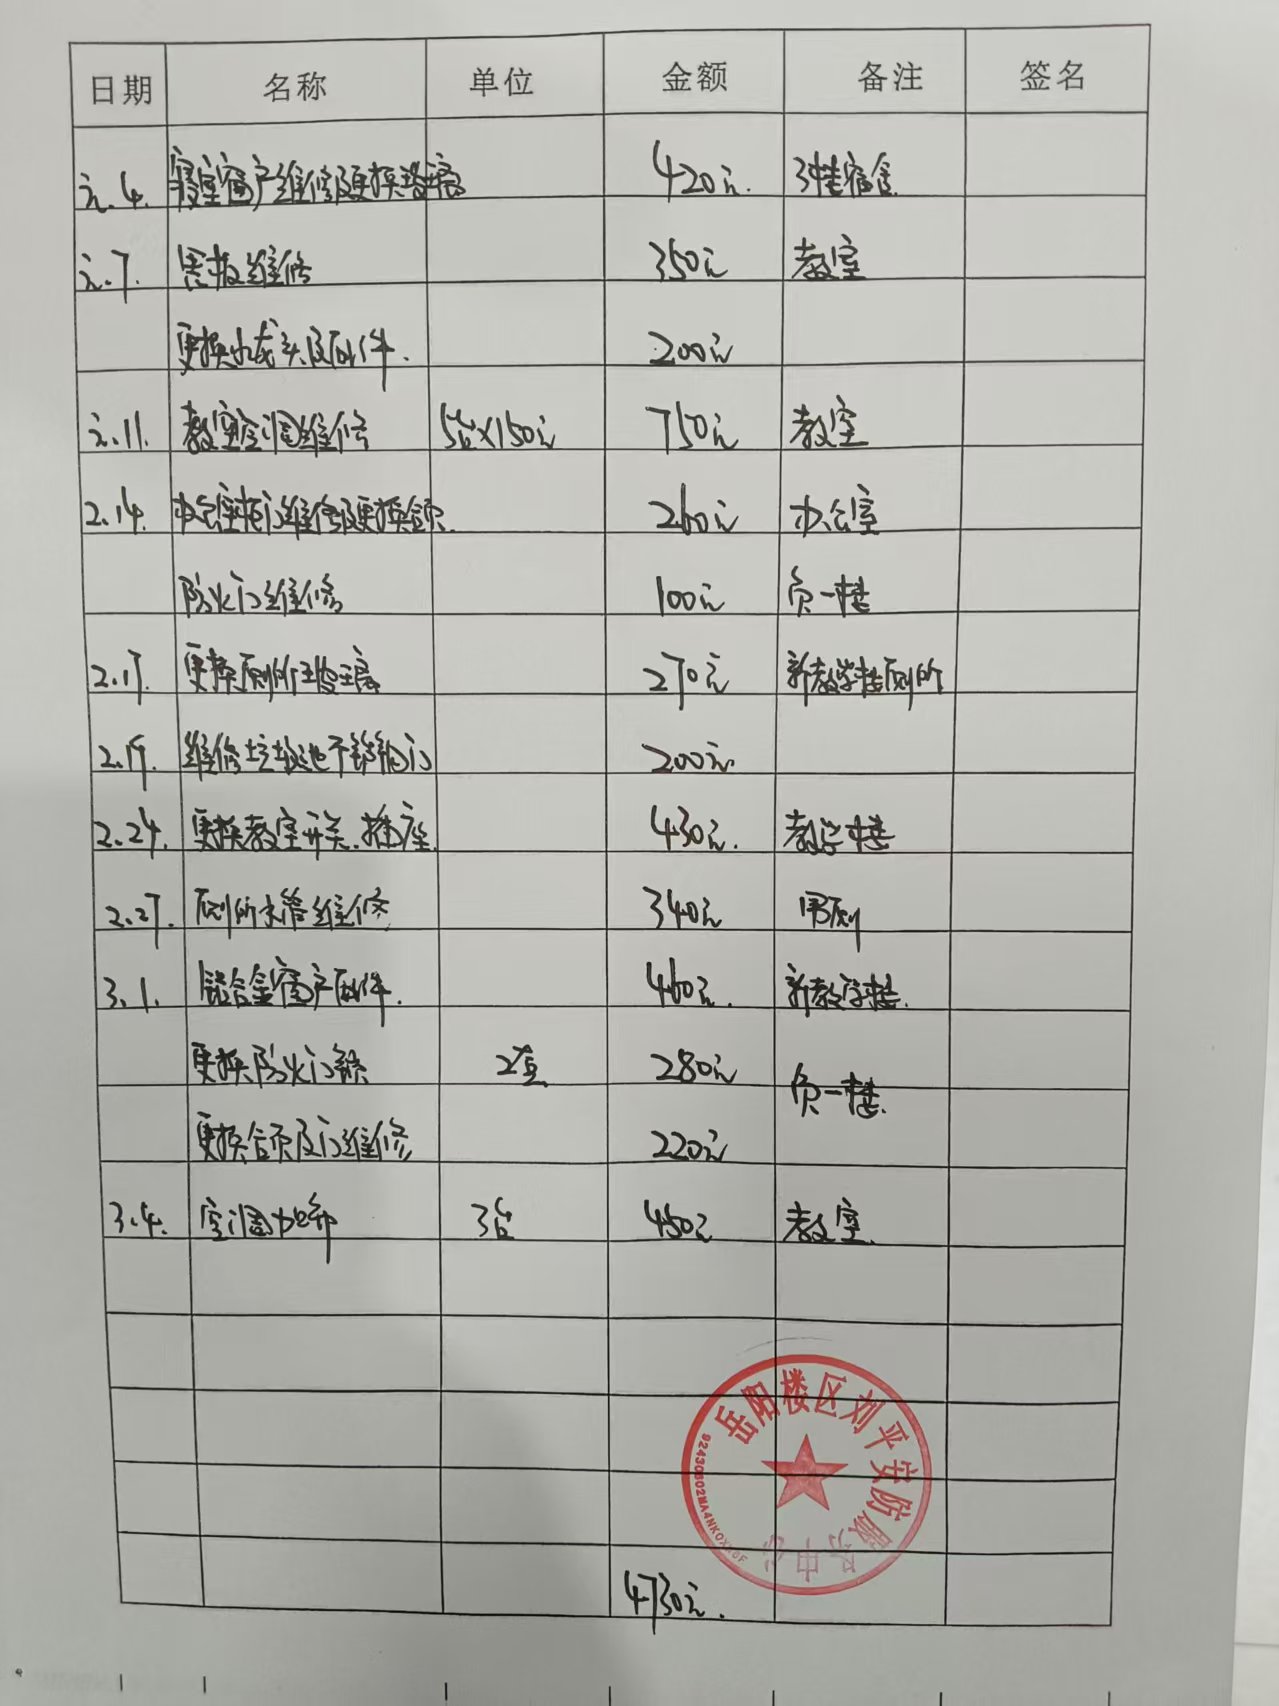 日期 名称 单位 金额 备注 签名
2.4. 寝室窗户维修及更换玻璃 420元. 3楼宿舍.
2.7. 黑板维修 350元 教室
更换水龙头及配件. 200元
2.11. 教室空调维修 5台×150元 750元 教室
2.14. 办公室柜门维修及更换合页. 260元 办公室
防火门维修 100元 负一楼
2.17. 更换厕所玻璃 270元 新教学楼厕所
2.19. 维修垃圾池不锈钢门 200元
2.24. 更换教室开关.插座. 430元. 教学楼
2.27. 厕所水管维修 340元 男厕
3.1. 铝合金窗户配件. 460元. 新教学楼.
更换防火门锁 2套 280元 负一楼.
更换合页及门维修 220元
3.4. 空调加氟 3台 450元 教室.
岳阳楼区刘平安防服务中心
4730元.